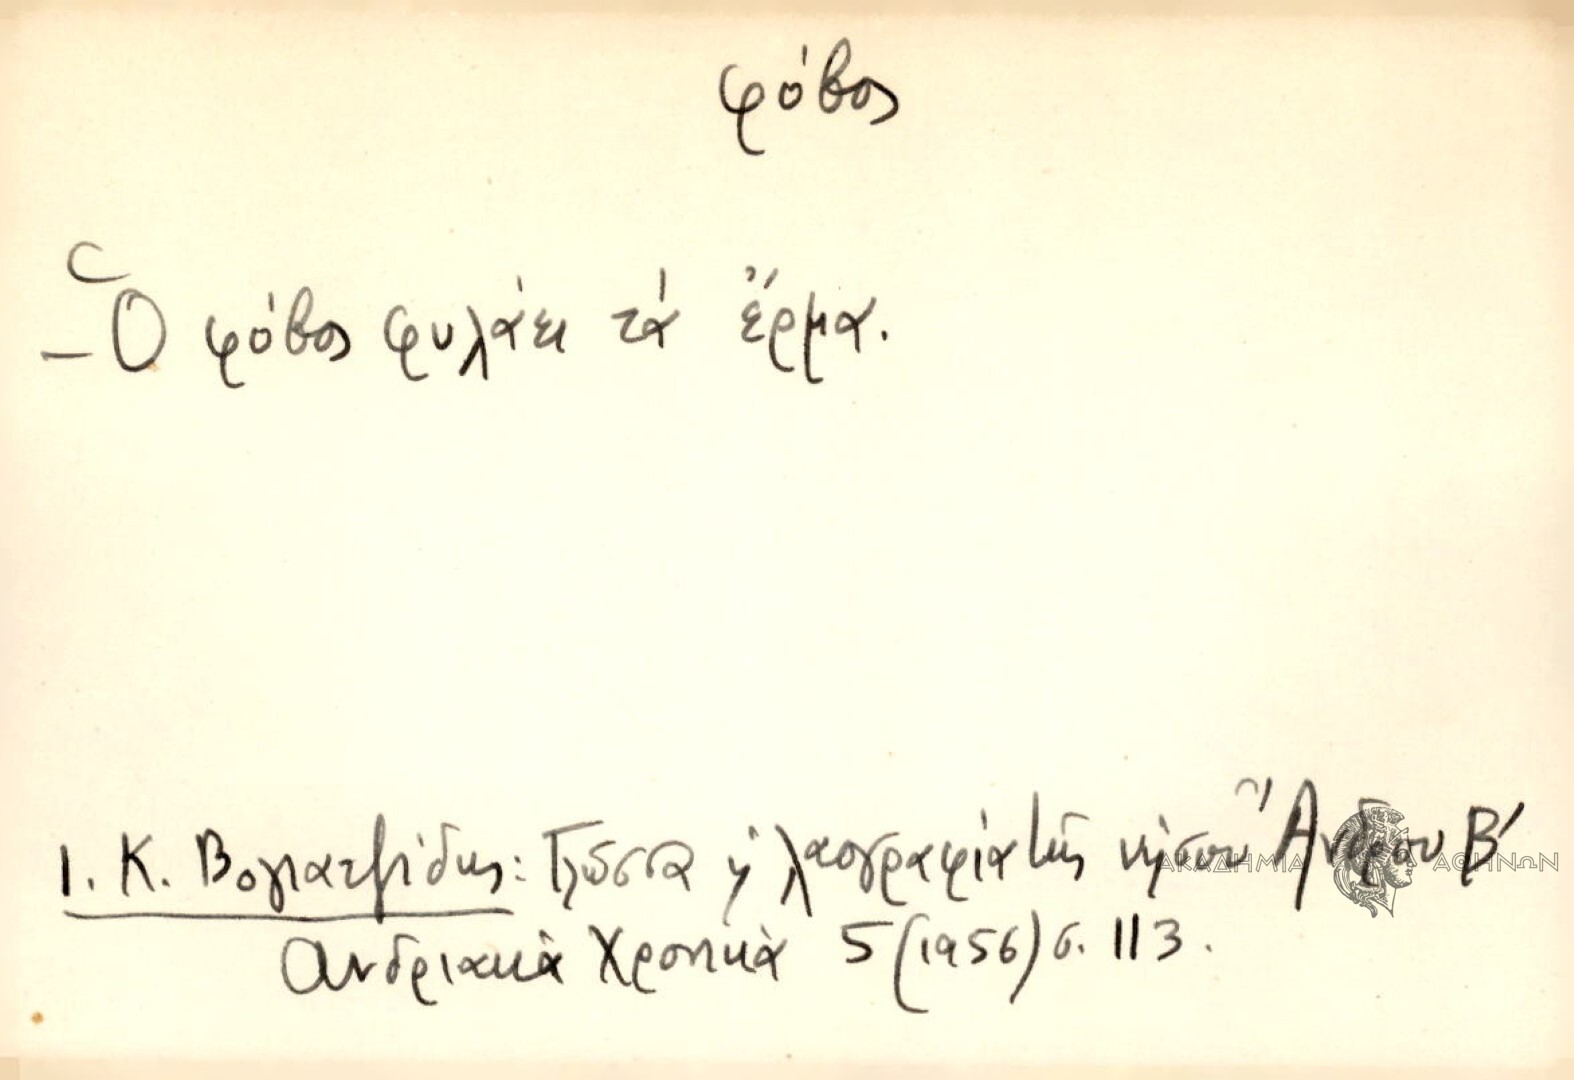 φόβος
– Ὁ φόβος φυλάει τά ἔρμα.
Ι. Κ. Βογιατζίδης: Γλῶσσα ἡ λαογραφία τῆς νήσου Ἄνδρου Β'
Ανδριακὰ Χρονικὰ 5 (1956) σ. 113.
ΑΚΑΔΗΜΙΑ ΑΘΗΝΩΝ